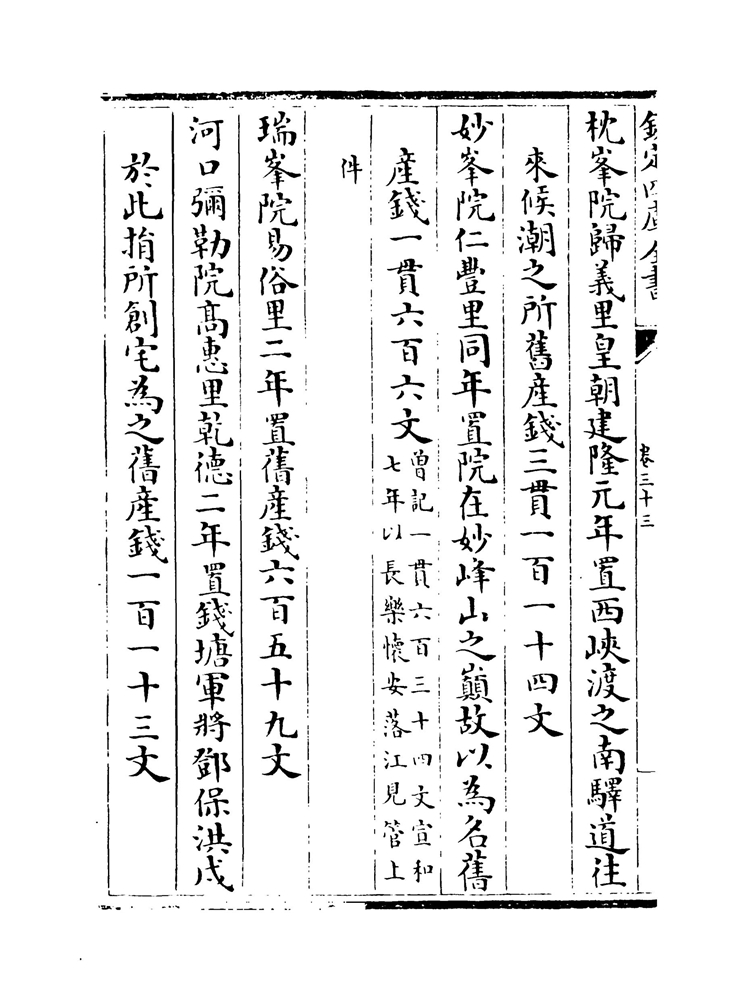 欽定四庫全書
卷三十三
枕峯院歸義里皇朝建隆元年置西峽渡之南驛道往
來候潮之所舊産錢三貫一百一十四文
妙峯院仁豐里同年置院在妙峰山之巔故以為名舊
産錢一貫六百六文曾記一貫六百三十四文宣和
七年以長樂懷安落江見管上
件
瑞峯院易俗里二年置舊産錢六百五十九文
河口彌勒院髙惠里乾德二年置錢塘軍將鄧保洪戍
於此捐所創宅為之舊産錢一百一十三文